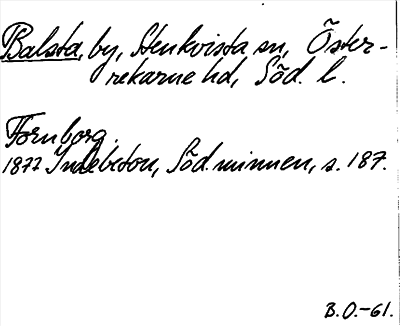 Balsta, by, Stenkvista sn, Öster-
rekarne hd, Söd. l.
Fornborg.
1877 Indebetou, Söd. minnen, s. 187.
B.O.-61.